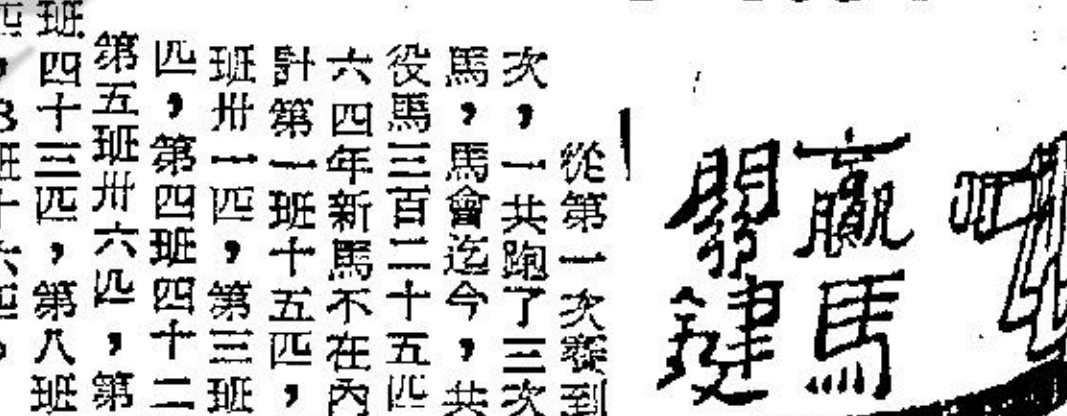 贏馬
關鍵
從第一次賽到
次，一共跑了三次
馬，馬會迄今，共
役馬三百二十五匹
六四年新馬不在內
計第一班十五匹，
班卅一匹，第三班
匹，第四班四十二
第五班卅六匹，第
班四十三匹，第八班